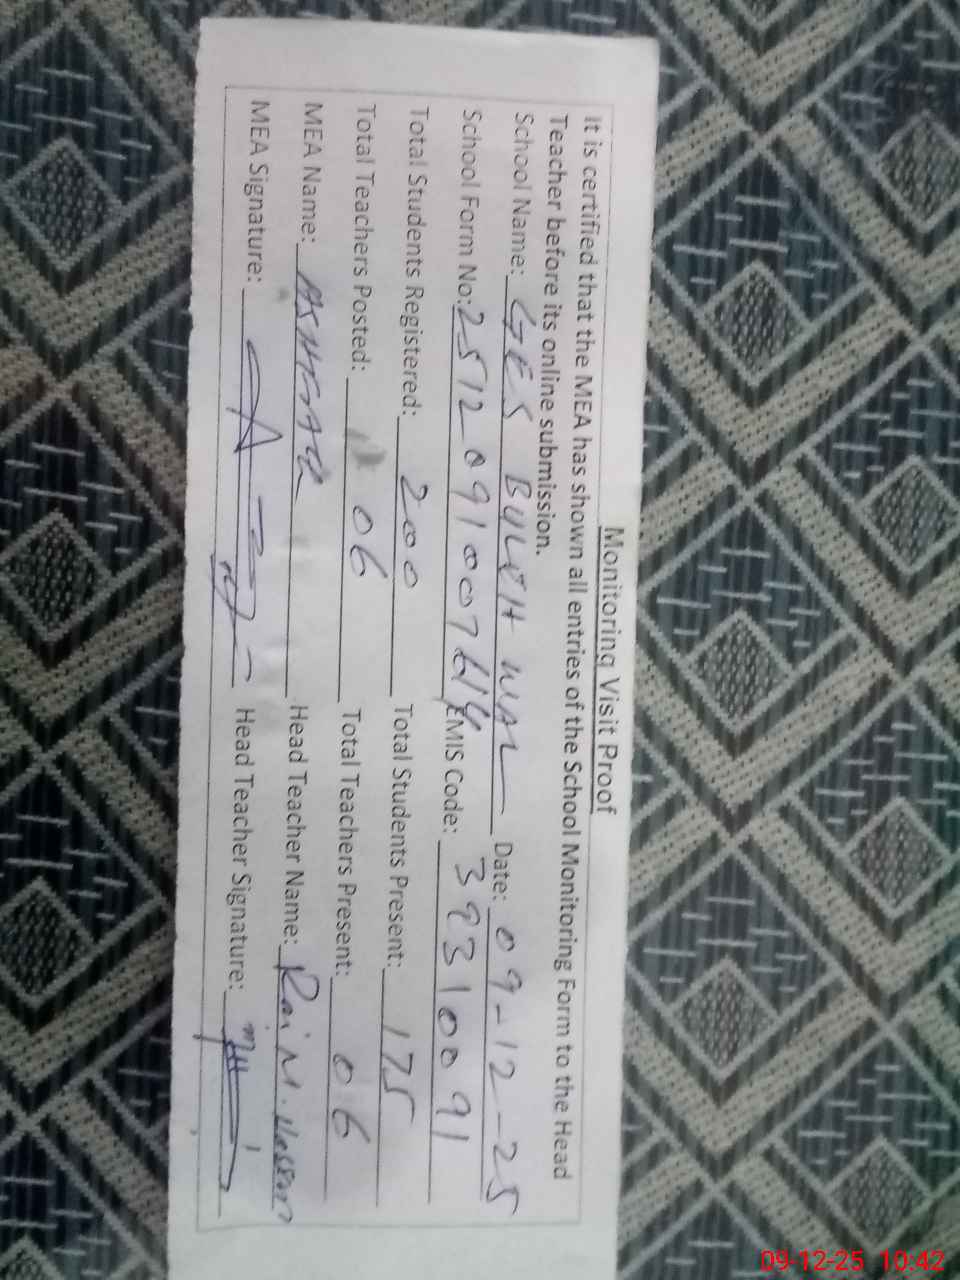 Monitoring Visit Proof
It is certified that the MEA has shown all entries of the School Monitoring Form to the Head
Teacher before its online submission.
School Name: GES Date: 09-12-25
School Form No: EMIS Code: 39310091
Total Students Registered: 200 Total Students Present: 175
Total Teachers Posted: 06 Total Teachers Present: 06
MEA Name: Head Teacher Name: Rai M.
MEA Signature: Head Teacher Signature:
09-12-25 10:42